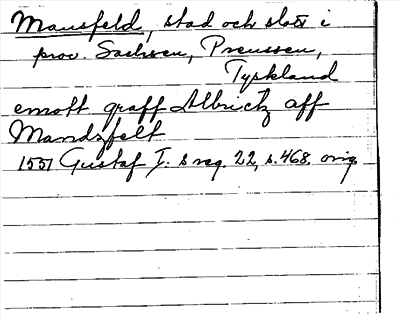 Mansfeld, stad och slott i
prov. Sachsen, Preussen,
Tyskland
emott graff Albrictz aff
Mandzfelt
1551 Gustaf I:s reg. 22, s. 468. orig.